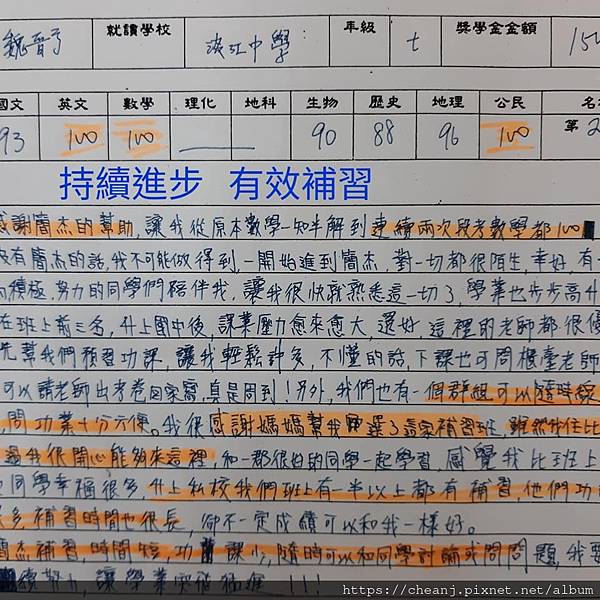 魏晉 就讀學校 淡江中學 年級 七 獎學金金額 15
國文 英文 數學 理化 地科 生物 歷史 地理 公民 名
93 100 100 90 88 96 100 第2
持續進步 有效補習
感謝簡杰的幫助,讓我從原本數學一知半解到連續兩次段考數學都100
沒有簡杰的話,我不可能做得到,一開始進到簡杰,對一切都很陌生,幸好,有一
積極,努力的同學們陪伴我,讓我很快就熟悉這一切了,學業也步步高升
在班上前三名,升上國中後,課業壓力愈來愈大,還好,這裡的老師都很優
先幫我們預習功課,讓我輕鬆許多,不懂的話,下課也可問櫃臺老師
可以請老師出考卷回家寫,真是周到!另外,我們也有一個群組可以隨時線
問功業十分方便。我很感謝媽媽幫我選了這家補習班,雖然我住比
過我很開心能夠來這裡,和一群很怕的同學一起學習,感覺我比班上
同學幸福很多,升上私校我們班上有一半以上都有補習,他們功
多補習時間也很長,卻不一定成績可以和我一樣好。
簡杰補習,時間短,功課少,隨時可以和同學討論或問問題,我要
續努力,讓學業突飛猛進!!!
https://cheanj.pixnet.net/album